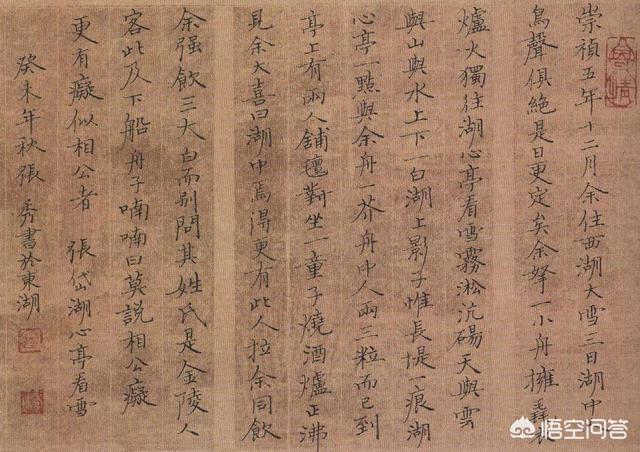 崇禎五年十二月余住西湖大雪三日湖中
鳥聲俱絕是日更定矣余拏一小舟擁毳
爐火獨往湖心亭看雪霧淞沆碭天與雲
與山與水上下一白湖上影子惟長堤一痕湖
心亭一點與余舟一芥舟中人兩三粒而已到
亭上有兩人鋪氈對坐一童子燒酒爐正沸
見余大喜曰湖中焉得更有此人拉余同飲
余強飲三大白而別問其姓氏是金陵人
客此及下船舟子喃喃曰莫說相公癡
更有癡似相公者 張岱湖心亭看雪
癸未年秋張秀書於東湖
悟空问答